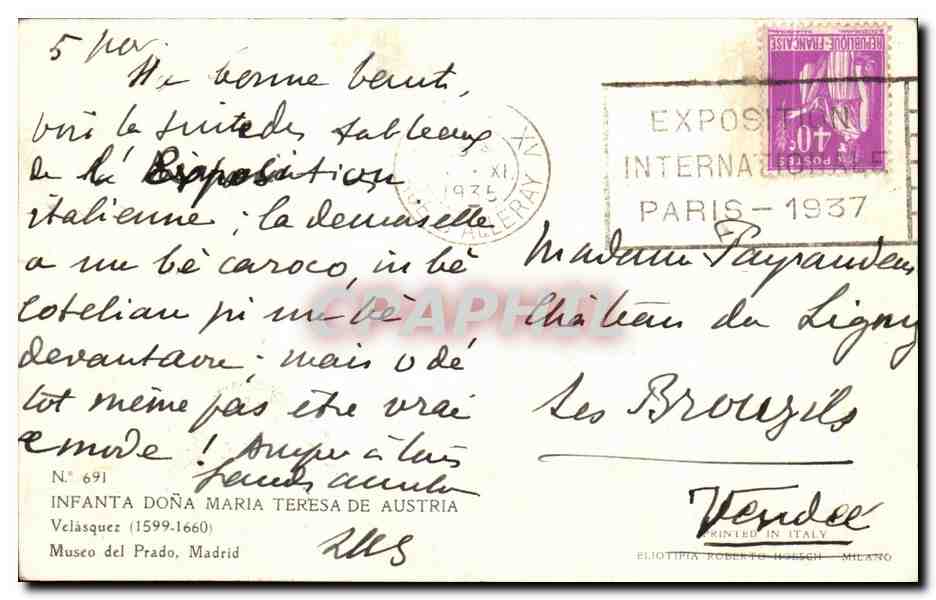 5 nov.
Ma bonne
voici la suite des tableaux
de la Exposition
italienne ; la demoiselle
a un bè caraco, in bè
cotelian pi un bè
devantaure ; mais o dé
tot même pas être vrai
mode !
N.° 691
INFANTA DOÑA MARIA TERESA DE AUSTRIA
Velásquez (1599-1660)
Museo del Prado, Madrid
PARIS XV
XI
1935
ALLERAY
EXPOSITION
INTERNATIONALE
PARIS - 1937
REPUBLIQUE FRANÇAISE
40c
POSTES
Madame Payraudeau
Château du Ligny
Les Brouzils
Vendée
PRINTED IN ITALY
ELIOTIPIA ROBERTO HOESCH - MILANO
CPAPHIL